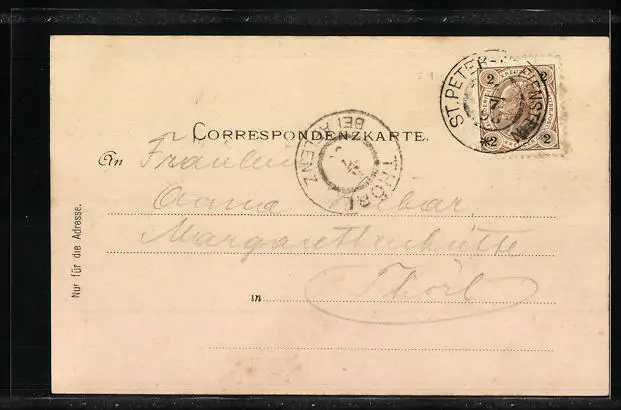 CORRESPONDENZKARTE.
An Fräulein
Anna
Margarethenhütte
in Thörl
Nur für die Adresse.
ST. PETER-
*2
THÖRL
BEI AFLENZ
2 2
2 2